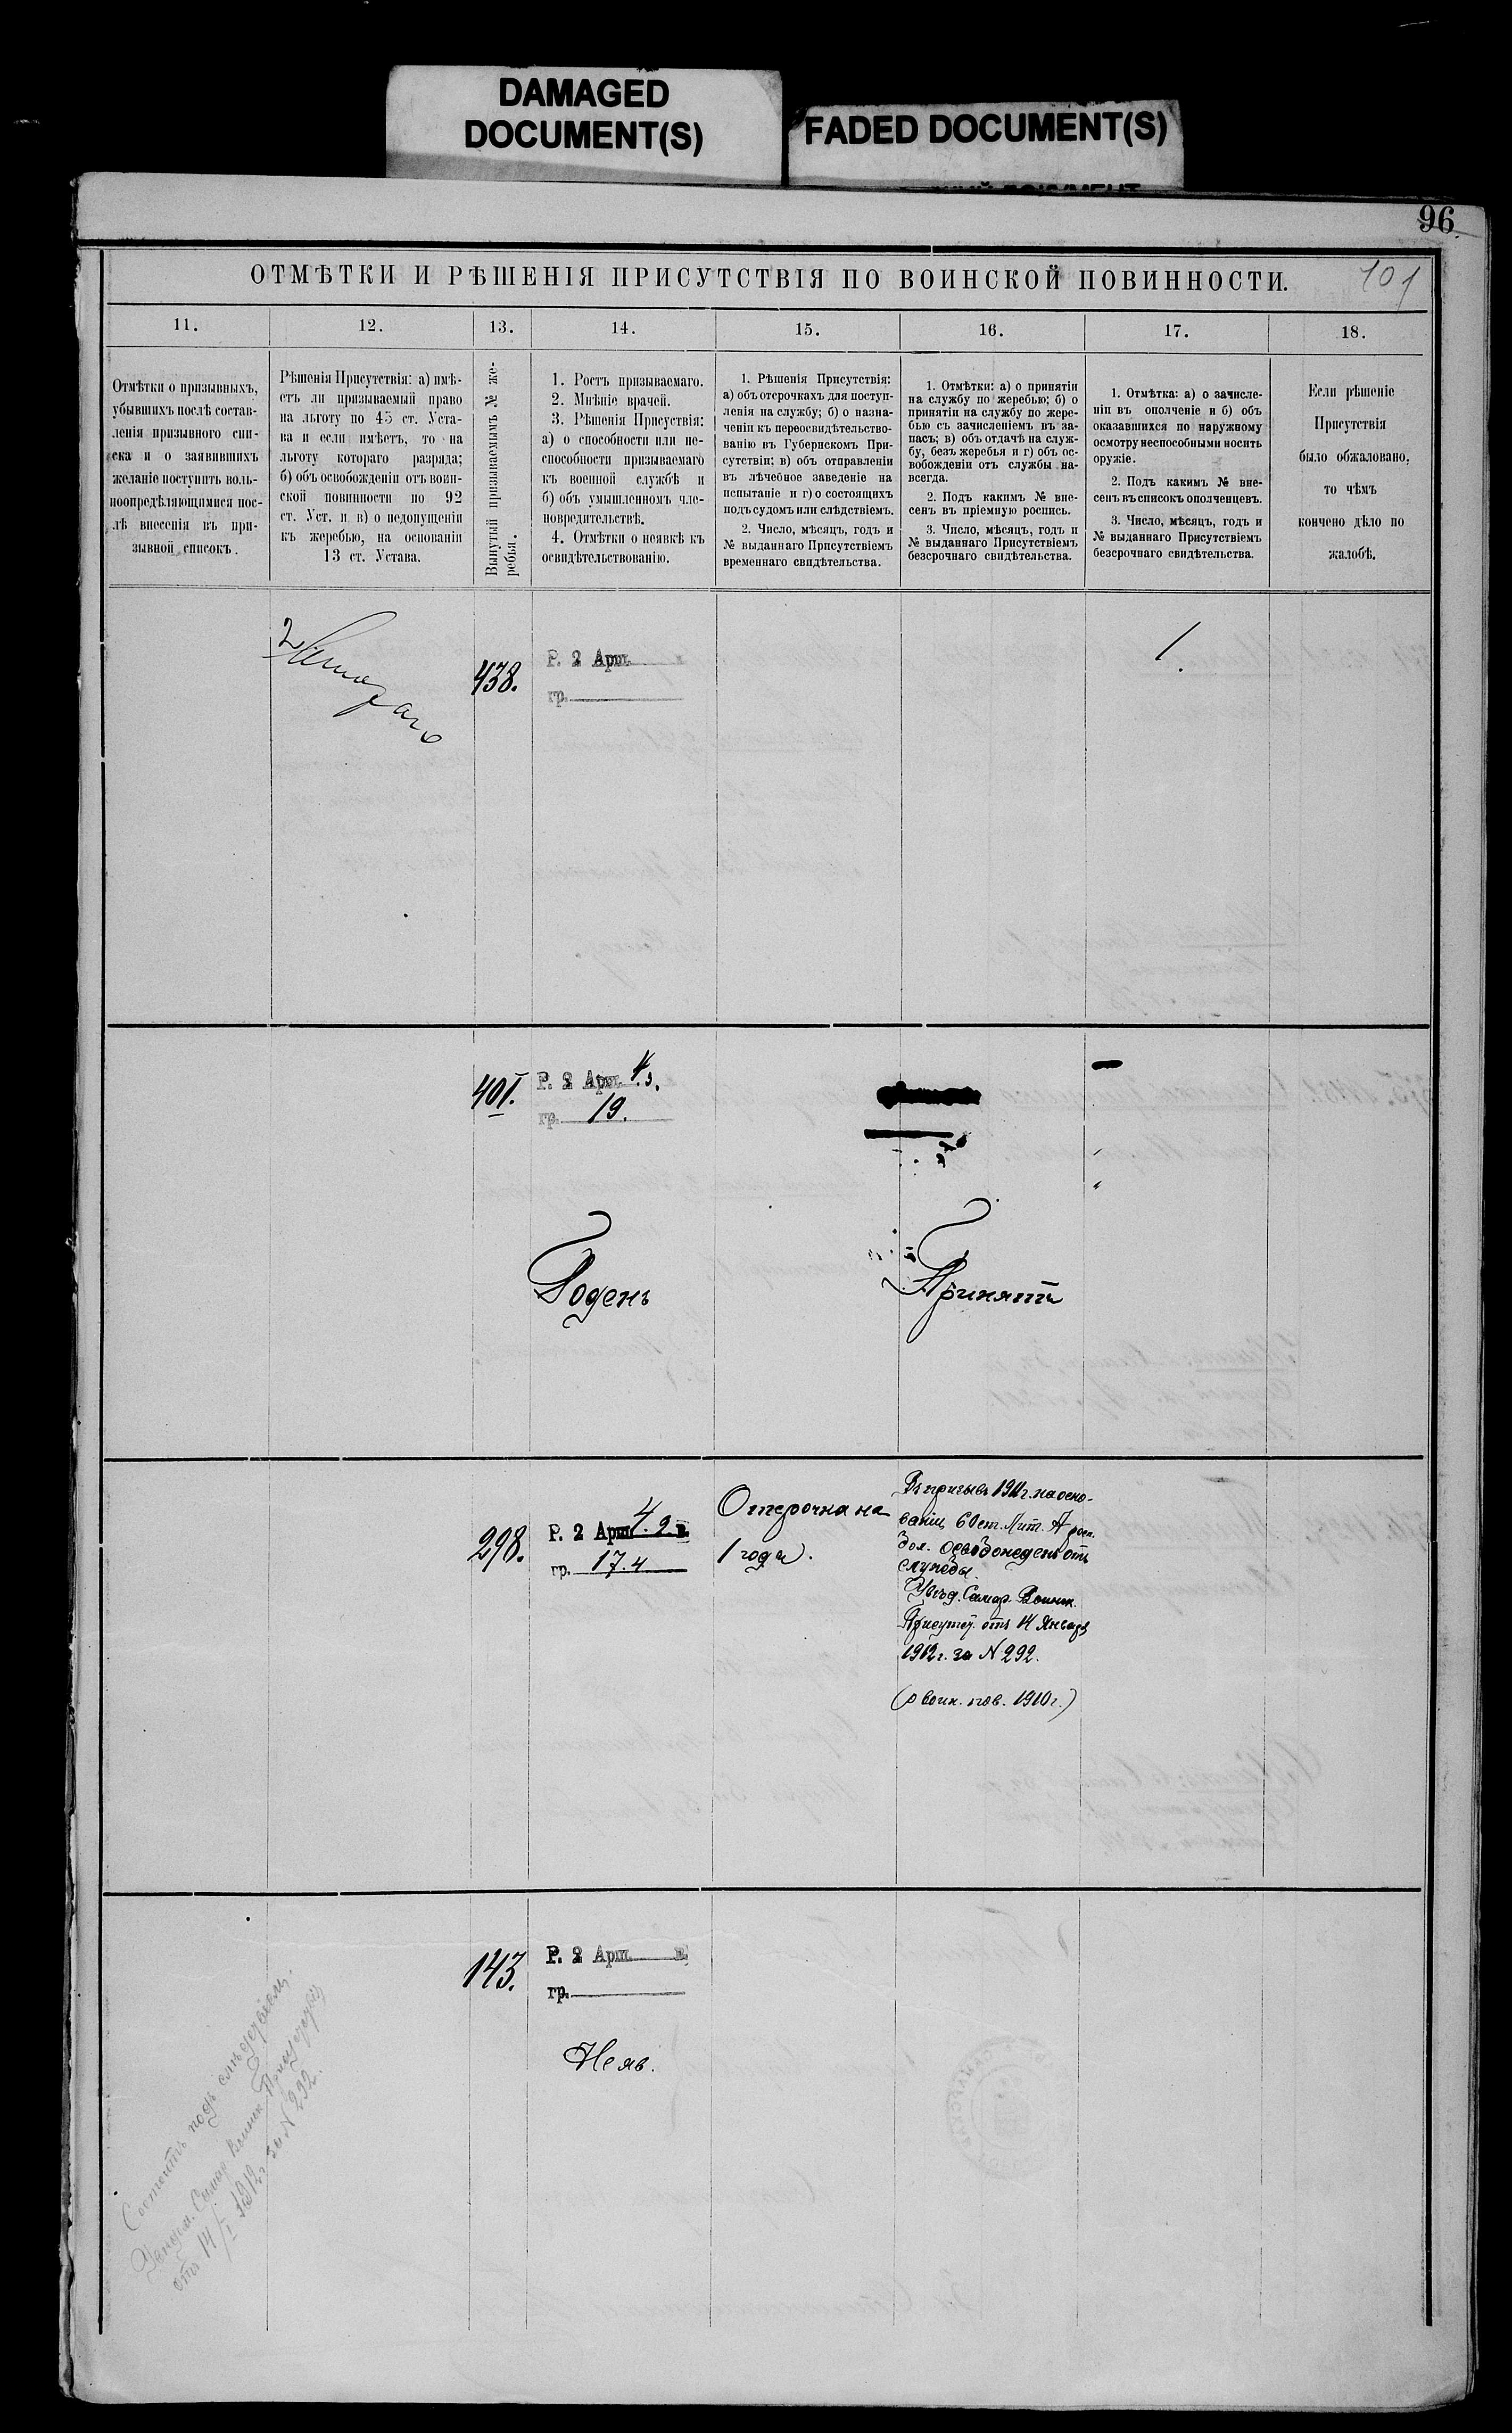 DAMAGED
DOCUMENT(S)
FADED DOCUMENT(S)
96.
101
ОТМѢТКИ И РѢШЕНІЯ ПРИСУТСТВІЯ ПО ВОИНСКОЙ ПОВИННОСТИ.
11.
12.
13.
14.
15.
16.
17.
18.
Отмѣтки о призывныхъ,
убывшихъ послѣ состав-
ленія призывного спи-
ска и о заявившихъ
желаніе поступить воль-
ноопредѣляющимися пос-
лѣ внесенія въ при-
зывной списокъ.
Рѣшенія Присутствія: а) имѣ-
етъ ли призываемый право
на льготу по 45 ст. Уста-
ва и если имѣетъ, то на
льготу котораго разряда;
б) объ освобожденіи отъ воин-
ской повинности по 92
ст. Уст. и в) о недопущеніи
къ жеребью, на основаніи
13 ст. Устава.
Вынутый призываемымъ № же-
ребья.
1. Ростъ призываемаго.
2. Мнѣніе врачей.
3. Рѣшенія Присутствія:
а) о способности или не-
способности призываемаго
къ военной службѣ и
б) объ умышленномъ чле-
новредительствѣ.
4. Отмѣтки о неявкѣ къ
освидѣтельствованію.
1. Рѣшенія Присутствія:
а) объ отсрочкахъ для поступ-
ленія на службу; б) о назна-
ченіи къ переосвидѣтельство-
ванію въ Губернскомъ При-
сутствіи; в) объ отправленіи
въ лѣчебное заведеніе на
испытаніе и г) о состоящихъ
подъ судомъ или слѣдствіемъ.
2. Число, мѣсяцъ, годъ и
№ выданнаго Присутствіемъ
временнаго свидѣтельства.
1. Отмѣтки: а) о принятіи
на службу по жеребью; б) о
принятіи на службу по жере-
бью съ зачисленіемъ въ за-
пасъ; в) объ отдачѣ на служ-
бу, безъ жеребья и г) объ ос-
вобожденіи отъ службы на-
всегда.
2. Подъ какимъ № вне-
сенъ въ пріемную роспись.
3. Число, мѣсяцъ, годъ и
№ выданнаго Присутствіемъ
безсрочнаго свидѣтельства.
1. Отмѣтка: а) о зачисле-
ніи въ ополченіе и б) объ
оказавшихся по наружному
осмотру неспособными носить
оружіе.
2. Подъ какимъ № вне-
сенъ въ списокъ ополченцевъ.
3. Число, мѣсяцъ, годъ и
№ выданнаго Присутствіемъ
безсрочнаго свидѣтельства.
Если рѣшеніе
Присутствія
было обжаловано,
то чѣмъ
кончено дѣло по
жалобѣ.
438.
Р. 2 Арш. в
гр.
1.
401.
Р. 2 Арш. 4
гр. 19.
Годенъ
Принятъ
298.
Р. 2 Арш. 4. 2 в.
гр. 17.4
Отсрочка на
1 годъ.
Въ призывъ 1911 г. на осно-
ваніи 60 ст. Лит. А
освобожденъ отъ
службы.
Увѣд. Самар. Воинск.
Присутс. отъ 14 Января
1912 г. за N 292.
(о воин. пов. 1910 г.)
143.
Р. 2 Арш. в.
гр.
Неяв.
Состоитъ подъ слѣдствіем.
Самар. Воинск. Присутств.
отъ 14/I 1912 г. за N 292.